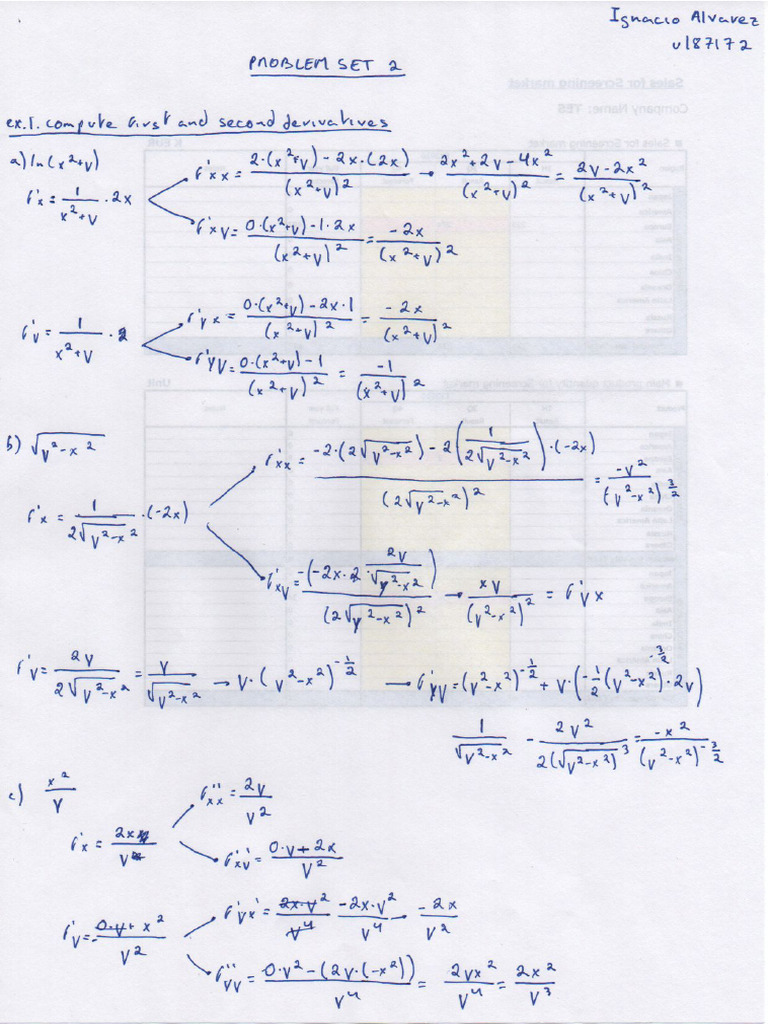 Ignacio Alvarez
u187172
PROBLEM SET 2
ex.1. compute first and second derivatives
a) ln(x²+y)
f'x = 1/(x²+y) · 2x
f'xx = (2·(x²+y) - 2x·(2x))/(x²+y)² → (2x²+2y-4x²)/(x²+y)² = (2y-2x²)/(x²+y)²
f'xy = (0·(x²+y) - 1·2x)/(x²+y)² = -2x/(x²+y)²
f'y = 1/(x²+y) ·
f'yx = (0·(x²+y) - 2x·1)/(x²+y)² = -2x/(x²+y)²
f'yy = (0·(x²+y) - 1)/(x²+y)² = -1/(x²+y)²
b) √(y²-x²)
f'xx = (-2·(2√(y²-x²)) - 2(1/(2√(y²-x²)))·(-2x))/(2√(y²-x²))² = -y²/(y²-x²)^(3/2)
f'x = 1/(2√(y²-x²)) · (-2x)
f'xy = -(-2x·2·2y/√(y²-x²))/(2√(y²-x²))² → xy/(y²-x²)² = f'yx
f'y = 2y/(2√(y²-x²)) = y/√(y²-x²) → y·(y²-x²)^(-1/2) → f'yy = (y²-x²)^(-1/2) + y·(-1/2(y²-x²)^(-3/2)·2y)
1/√(y²-x²) - 2y²/(2(√(y²-x²))³) = -x²/(y²-x²)^(-3/2)
c) x²/y
f''xx = 2y/y²
f'x = 2x/y
f'xy' = (0·y+2x)/y²
f'yx' = -2x·y²/y⁴ → -2x/y²
f'y = (0·y+x²)/y²
f''yy = (0·y²-(2y·(-x²)))/y⁴ = 2yx²/y⁴ = 2x²/y³